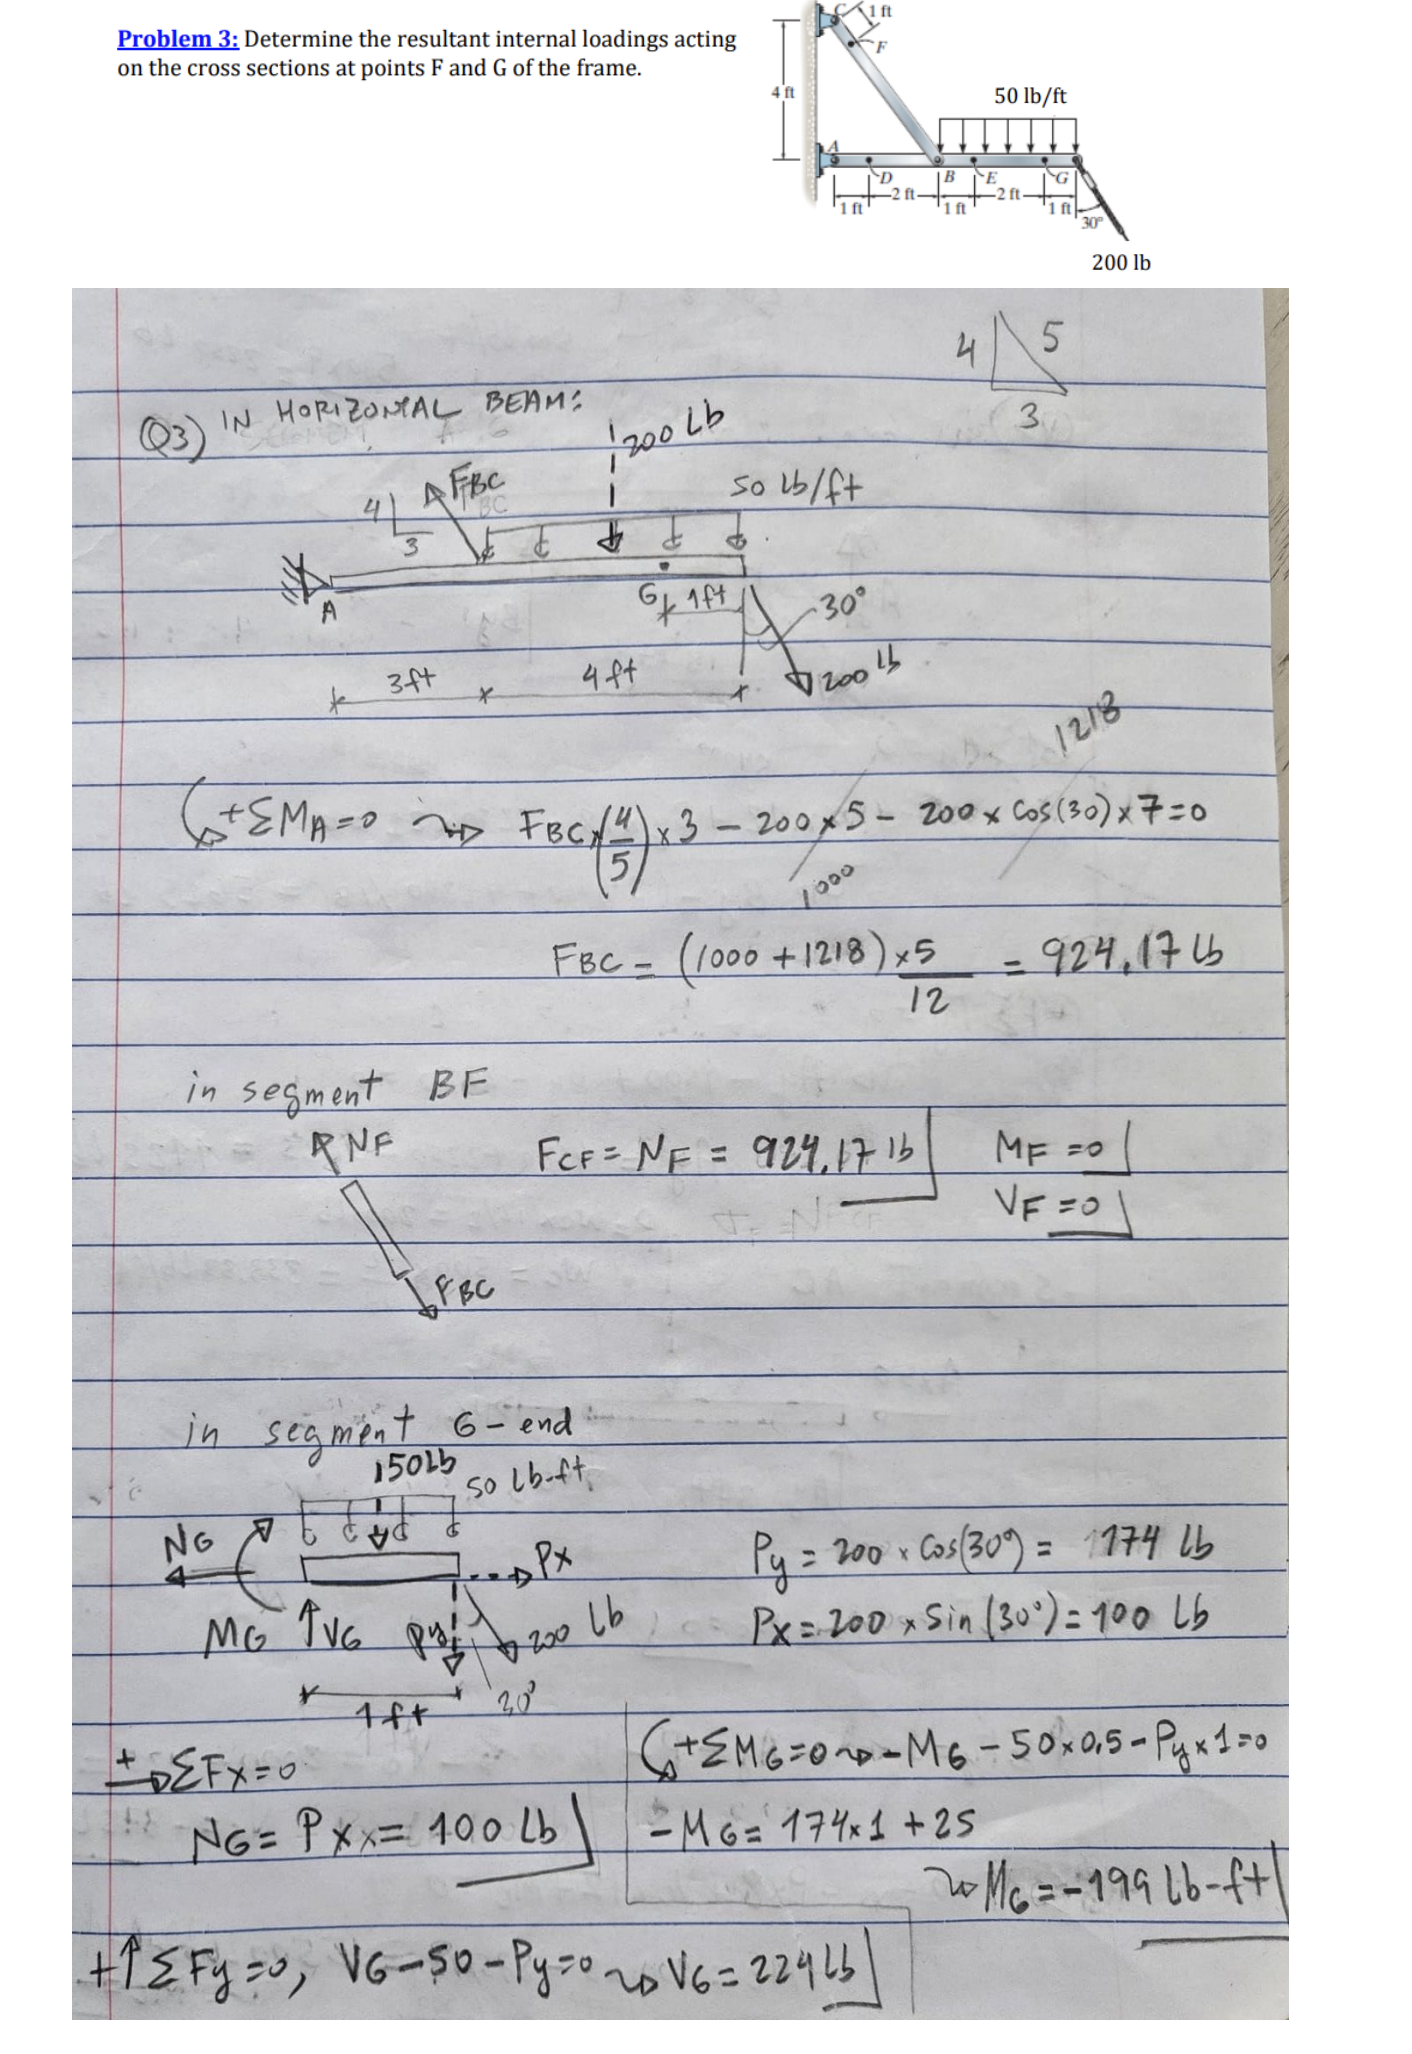 Problem 3: Determine the resultant internal loadings acting
on the cross sections at points F and G of the frame.
C
1 ft
F
4 ft
50 lb/ft
A
D
B
E
G
2 ft
2 ft
1 ft
1 ft
1 ft
30°
200 lb
4
5
3
Q3) IN HORIZONTAL BEAM:
200 Lb
FBC
50 lb/ft
4
3
A
G
1ft
30°
200 lb
3ft
4ft
1218
+ΣMA=0 ⇝ FBC×(4/5)×3 - 200×5 - 200×Cos(30)×7=0
1000
FBC = (1000+1218)×5/12 = 924,17 lb
in segment BF
NF
FCF = NF = 924,17 lb
MF =0
VF =0
FBC
in segment G-end
50Lb
50 Lb-ft
NG
Px
Py = 200 × Cos(30°) = 174 Lb
MG
VG
Py
200 Lb
Px = 200 × Sin(30°) = 100 Lb
1ft
30°
+→ΣFx=0
NG = Px = 100 Lb
+ΣMG=0 ⇝ -MG - 50×0,5 - Py×1=0
-MG = 174×1 + 25
⇝ MG = -199 Lb-ft
+↑ΣFy=0, VG-50-Py=0 ⇝ VG = 224 Lb